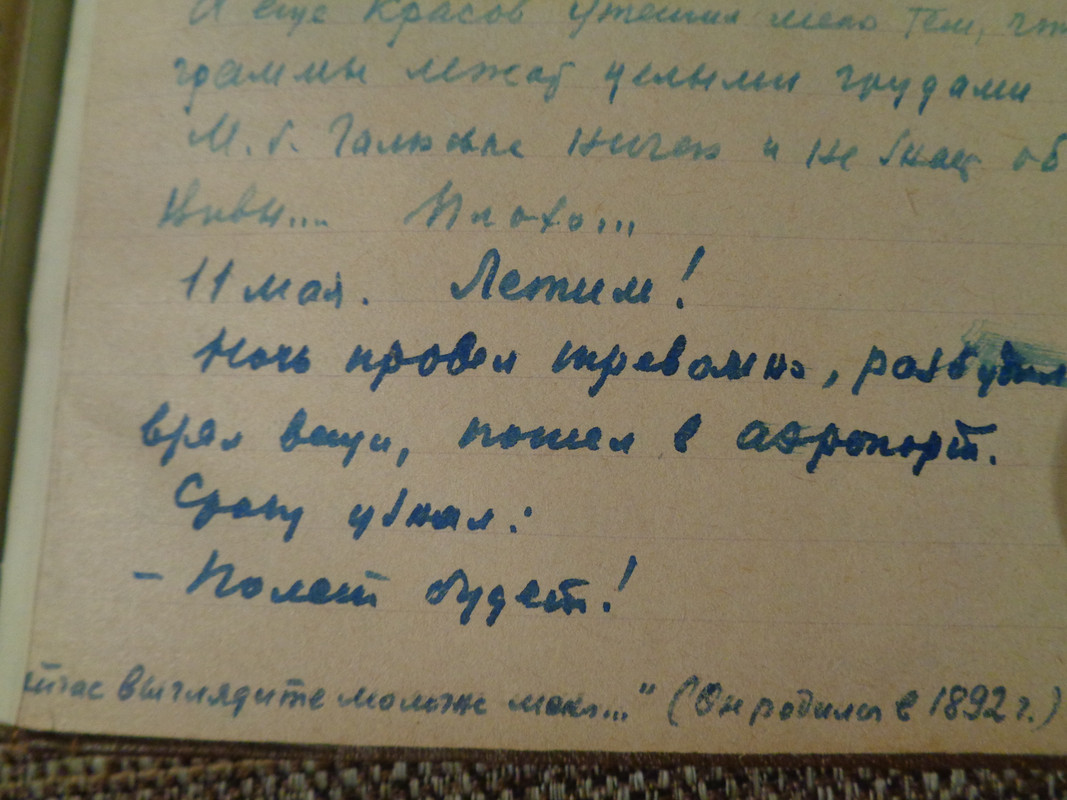 И еще Красов утешил меня тем, что
граммы лежат целыми грудами
М. б. Галковы ничего и не знают об
Плохо...
11 мая. Летим!
Ночь провел тревожно, разбудил
взял вещи, пошел в аэропорт.
Сразу узнал:
- Полет будет!
выглядите моложе меня..." (Он родился в 1892 г.)